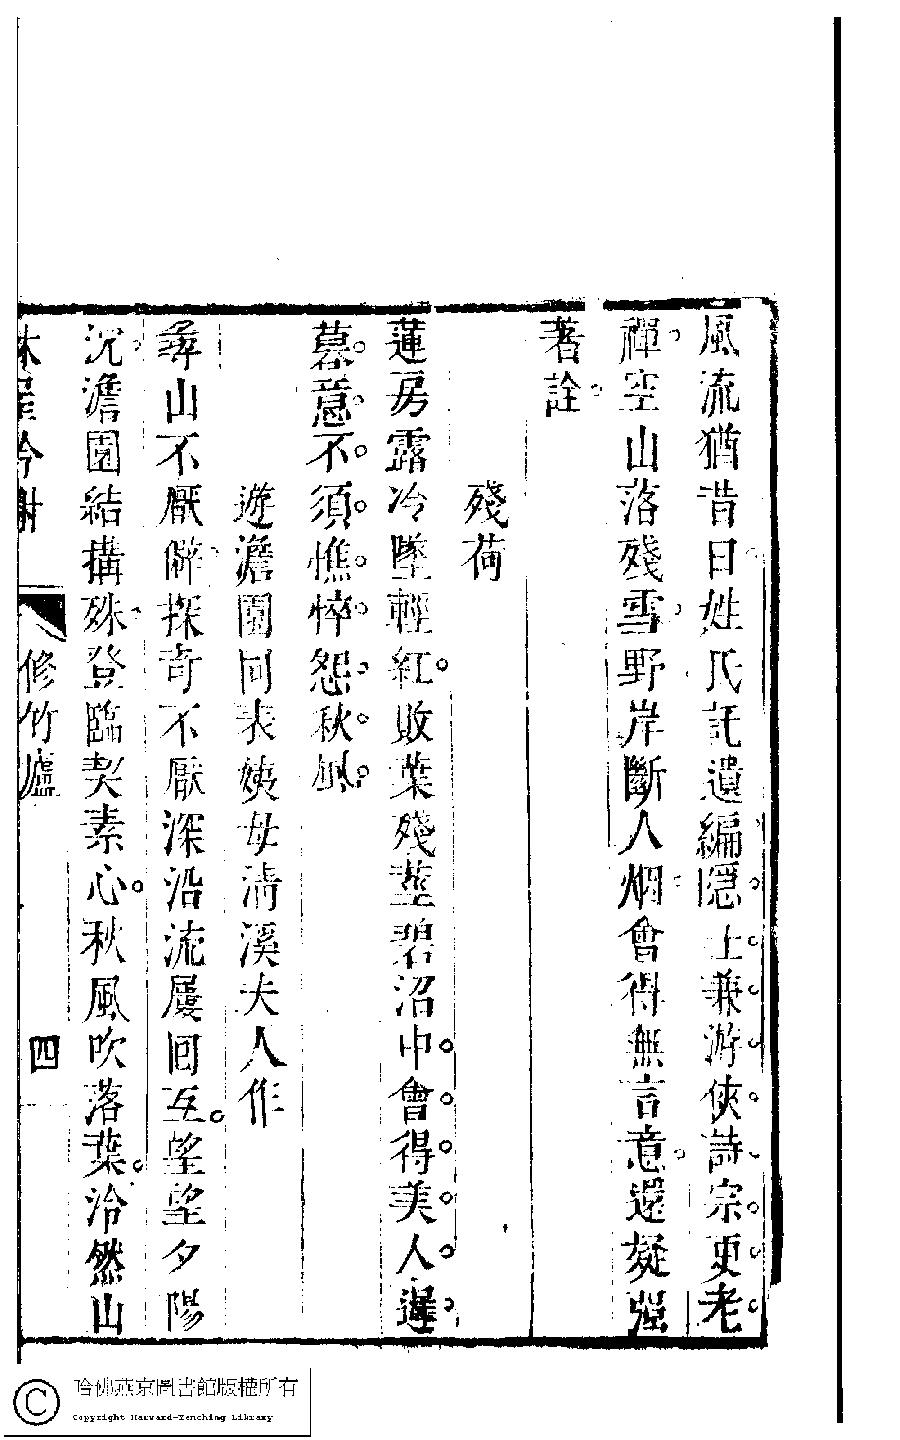 風流猶昔日姓氏託遺編隱士兼游俠詩宗更老
禪空山落殘雪野岸斷人烟會得無言意還疑強
著詮
殘荷
蓮房露冷墜輕紅敗葉殘莖碧沼中會得美人遲
暮意不須憔悴怨秋風
遊澹園同表姨母淸溪夫人作
尋山不厭僻探奇不厭深沿流屢回互望望夕陽
沉澹園結搆殊登臨契素心秋風吹落葉泠然山
修竹廬
四
哈佛燕京圖書館版權所有
Copyright Harvard-Yenching Library